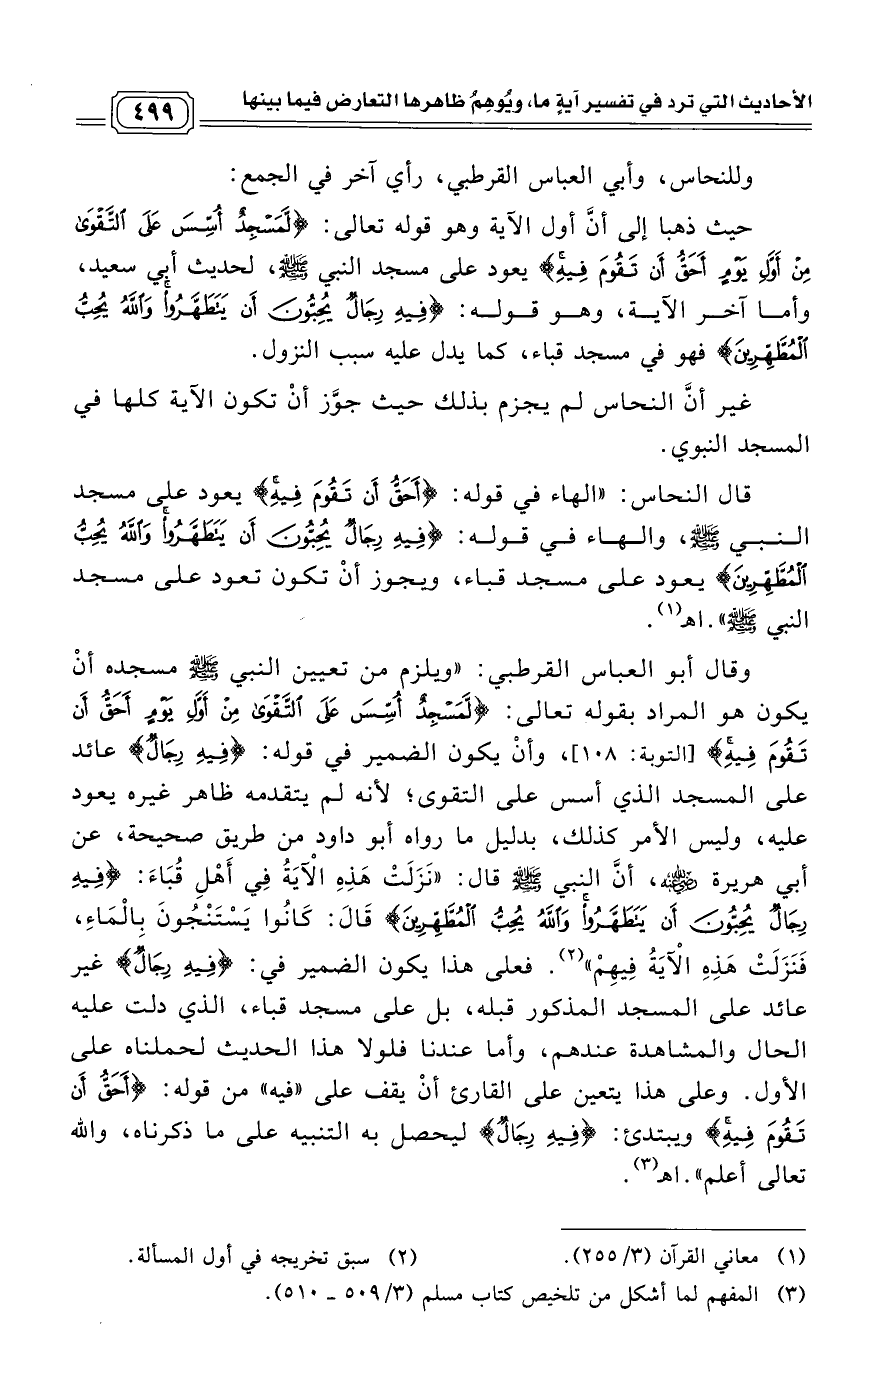 الأحاديث التي ترد في تفسير آيةٍ ما، ويُوهِمُ ظاهرها التعارض فيما بينها
٤٩٩
وللنحاس، وأبي العباس القرطبي، رأي آخر في الجمع:
حيث ذهبا إلى أنَّ أول الآية وهو قوله تعالى: ﴿لَّمَسْجِدٌ أُسِّسَ عَلَى ٱلتَّقْوَىٰ
مِنْ أَوَّلِ يَوْمٍ أَحَقُّ أَن تَقُومَ فِيهِۚ﴾ يعود على مسجد النبي ﷺ، لحديث أبي سعيد،
وأما آخر الآية، وهو قوله: ﴿فِيهِ رِجَالٌ يُحِبُّونَ أَن يَتَطَهَّرُواْۚ وَٱللَّهُ يُحِبُّ
ٱلْمُطَّهِّرِينَ﴾ فهو في مسجد قباء، كما يدل عليه سبب النزول.
غير أنَّ النحاس لم يجزم بذلك حيث جوَّز أنْ تكون الآية كلها في
المسجد النبوي.
قال النحاس: «الهاء في قوله: ﴿أَحَقُّ أَن تَقُومَ فِيهِۚ﴾ يعود على مسجد
النبي ﷺ، والهاء في قوله: ﴿فِيهِ رِجَالٌ يُحِبُّونَ أَن يَتَطَهَّرُواْۚ وَٱللَّهُ يُحِبُّ
ٱلْمُطَّهِّرِينَ﴾ يعود على مسجد قباء، ويجوز أنْ تكون تعود على مسجد
النبي ﷺ».اهـ(١).
وقال أبو العباس القرطبي: «ويلزم من تعيين النبي ﷺ مسجده أنْ
يكون هو المراد بقوله تعالى: ﴿لَّمَسْجِدٌ أُسِّسَ عَلَى ٱلتَّقْوَىٰ مِنْ أَوَّلِ يَوْمٍ أَحَقُّ أَن
تَقُومَ فِيهِۚ﴾ [التوبة: ١٠٨]، وأنْ يكون الضمير في قوله: ﴿فِيهِ رِجَالٌ﴾ عائد
على المسجد الذي أسس على التقوى؛ لأنه لم يتقدمه ظاهر غيره يعود
عليه، وليس الأمر كذلك، بدليل ما رواه أبو داود من طريق صحيحة، عن
أبي هريرة رضي الله عنه، أنَّ النبي ﷺ قال: «نَزَلَتْ هَذِهِ الْآيَةُ فِي أَهْلِ قُبَاءَ: ﴿فِيهِ
رِجَالٌ يُحِبُّونَ أَن يَتَطَهَّرُواْۚ وَٱللَّهُ يُحِبُّ ٱلْمُطَّهِّرِينَ﴾ قَالَ: كَانُوا يَسْتَنْجُونَ بِالْمَاءِ،
فَنَزَلَتْ هَذِهِ الْآيَةُ فِيهِمْ»(٢). فعلى هذا يكون الضمير في: ﴿فِيهِ رِجَالٌ﴾ غير
عائد على المسجد المذكور قبله، بل على مسجد قباء، الذي دلت عليه
الحال والمشاهدة عندهم، وأما عندنا فلولا هذا الحديث لحملناه على
الأول. وعلى هذا يتعين على القارئ أنْ يقف على «فيه» من قوله: ﴿أَحَقُّ أَن
تَقُومَ فِيهِۚ﴾ ويبتدئ: ﴿فِيهِ رِجَالٌ﴾ ليحصل به التنبيه على ما ذكرناه، والله
تعالى أعلم».اهـ(٣).
(١) معاني القرآن (٣/ ٢٥٥).
(٢) سبق تخريجه في أول المسألة.
(٣) المفهم لما أشكل من تلخيص كتاب مسلم (٣/ ٥٠٩ - ٥١٠).